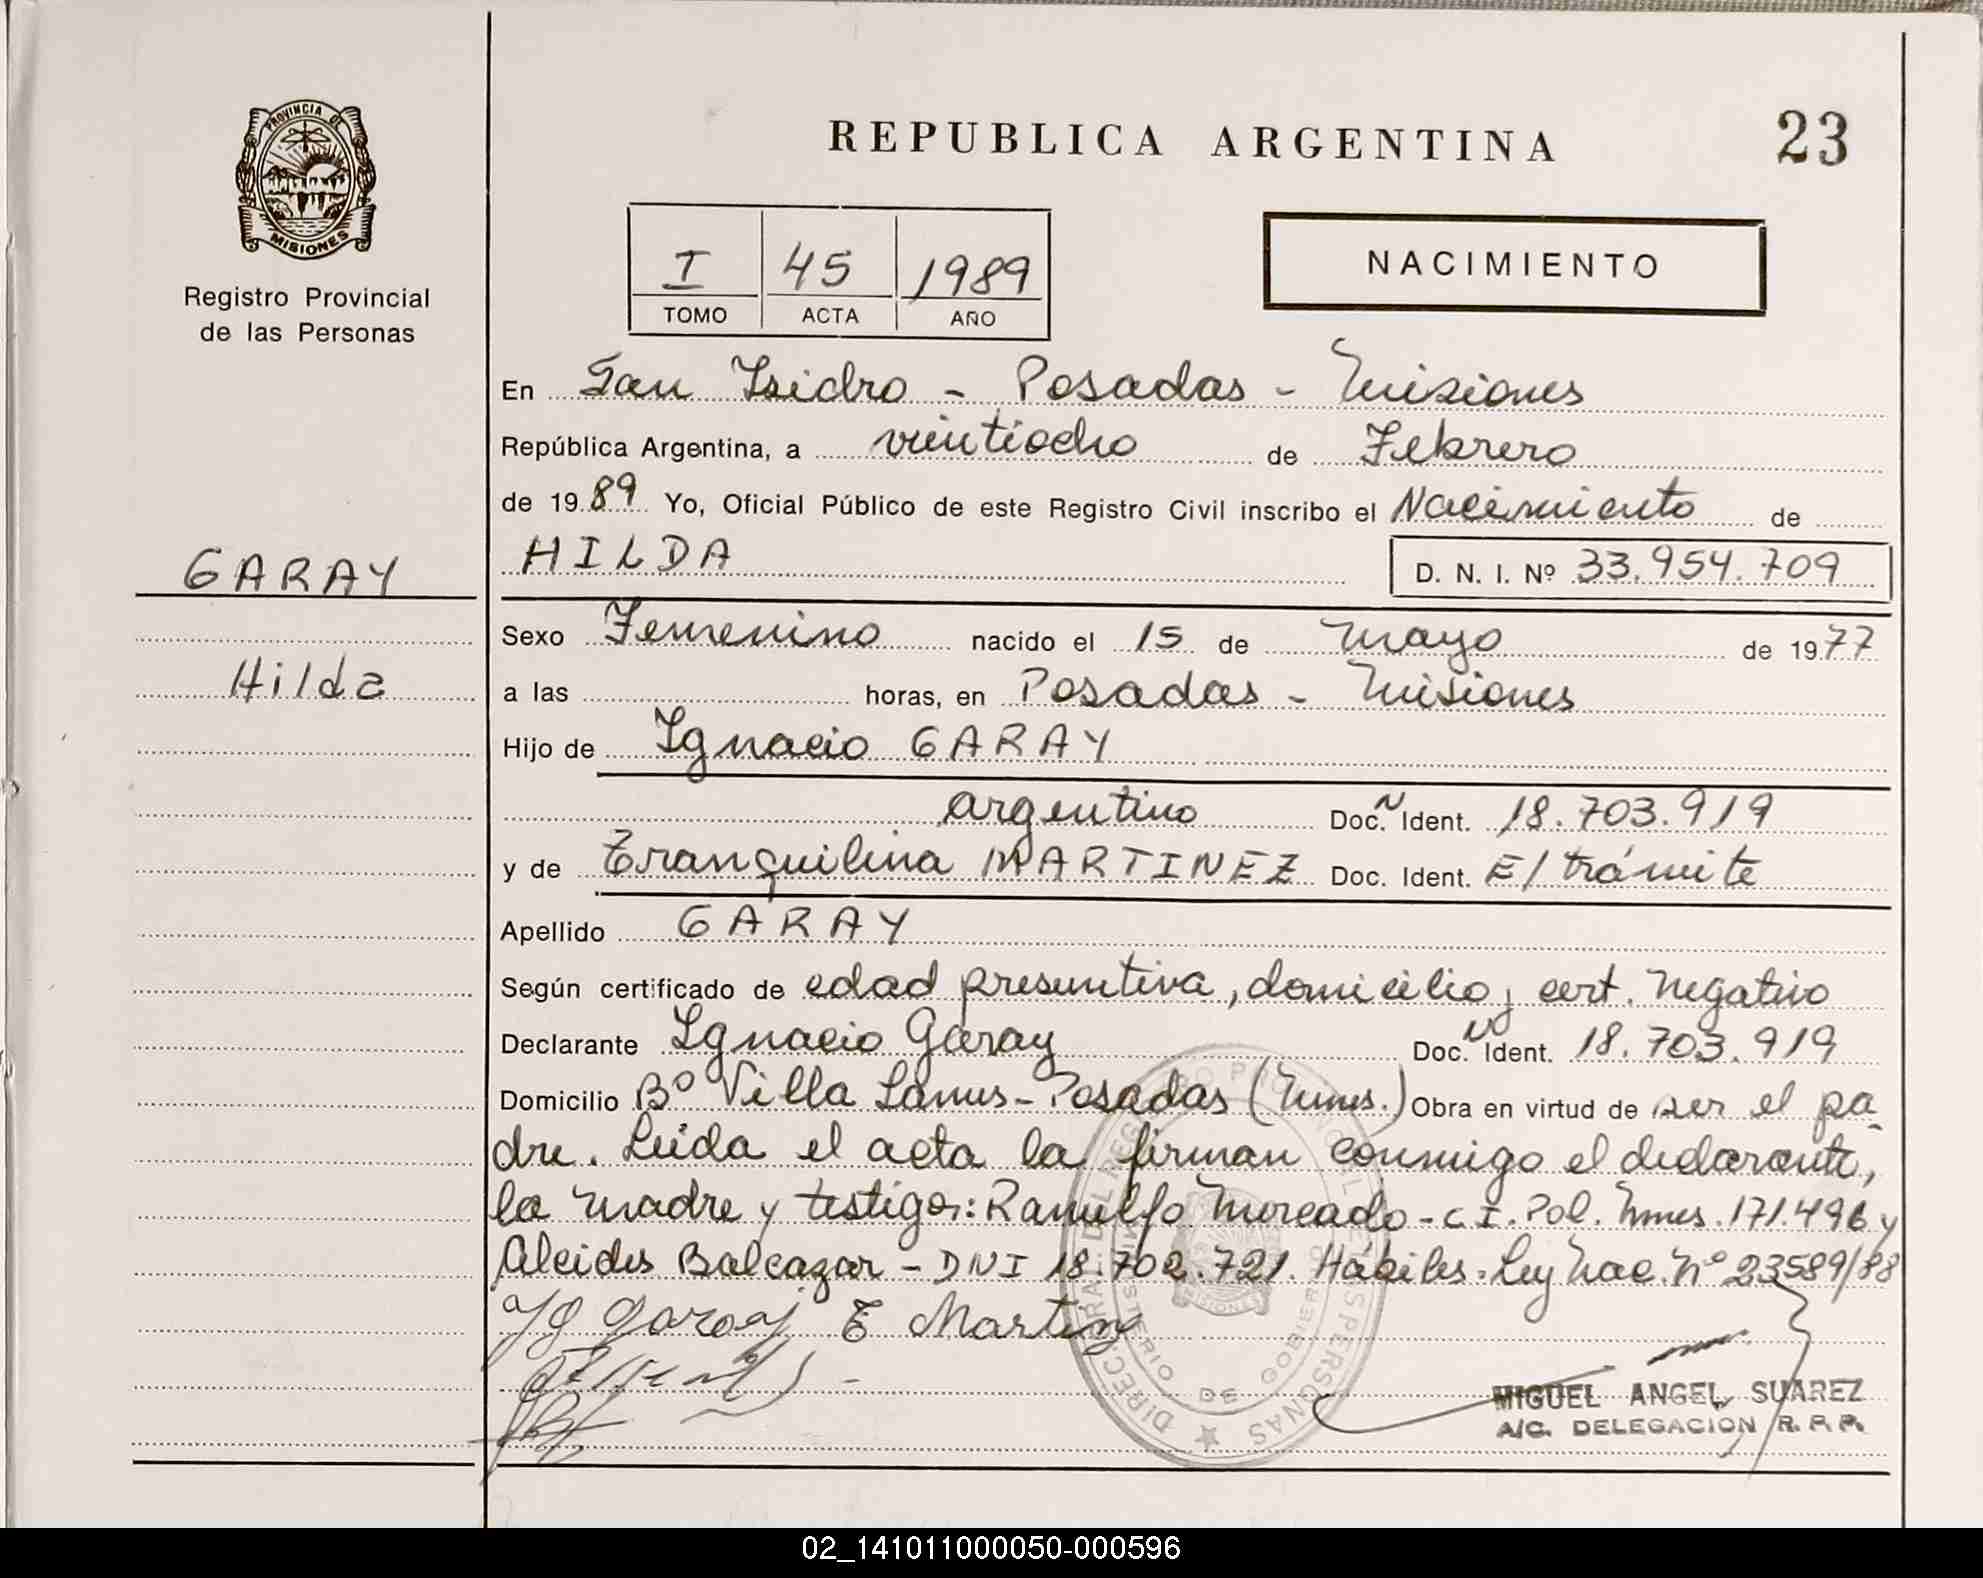 PROVINCIA DE
MISIONES
Registro Provincial
de las Personas
GARAY
Hilda
REPUBLICA ARGENTINA
23
I 45 1989
TOMO ACTA AÑO
NACIMIENTO
En San Isidro - Posadas - Misiones
República Argentina, a veintiocho de Febrero
de 1989 Yo, Oficial Público de este Registro Civil inscribo el Nacimiento de
HILDA D. N. I. Nº 33.954.709
Sexo Femenino nacido el 15 de Mayo de 1977
a las horas, en Posadas - Misiones
Hijo de Ignacio GARAY
argentino Doc. Ident. 18.703.919
y de Tranquilina MARTINEZ Doc. Ident. E/ trámite
Apellido GARAY
Según certificado de edad presuntiva, domicilio, cert. Negativo
Declarante Ignacio Garay Doc. Ident. 18.703.919
Domicilio Bº Villa Lanus - Posadas (Mnes.) Obra en virtud de ser el pa-
dre. Leida el acta la firman conmigo el declarante,
la madre y testigos: Ranulfo Morcado - C.I. Pol. Mnes. 171.496 y
Alcides Balcazar - DNI 18.702.721. Hábiles. Ley Nac. Nº 23589/88
Ig garay T Martinz
DIREC. GRAL. DEL REGISTRO PROVINCIAL DE LAS PERSONAS
MINISTERIO DE GOBIERNO
MISIONES
MIGUEL ANGEL SUAREZ
A/C. DELEGACION R. P. P.
02_141011000050-000596